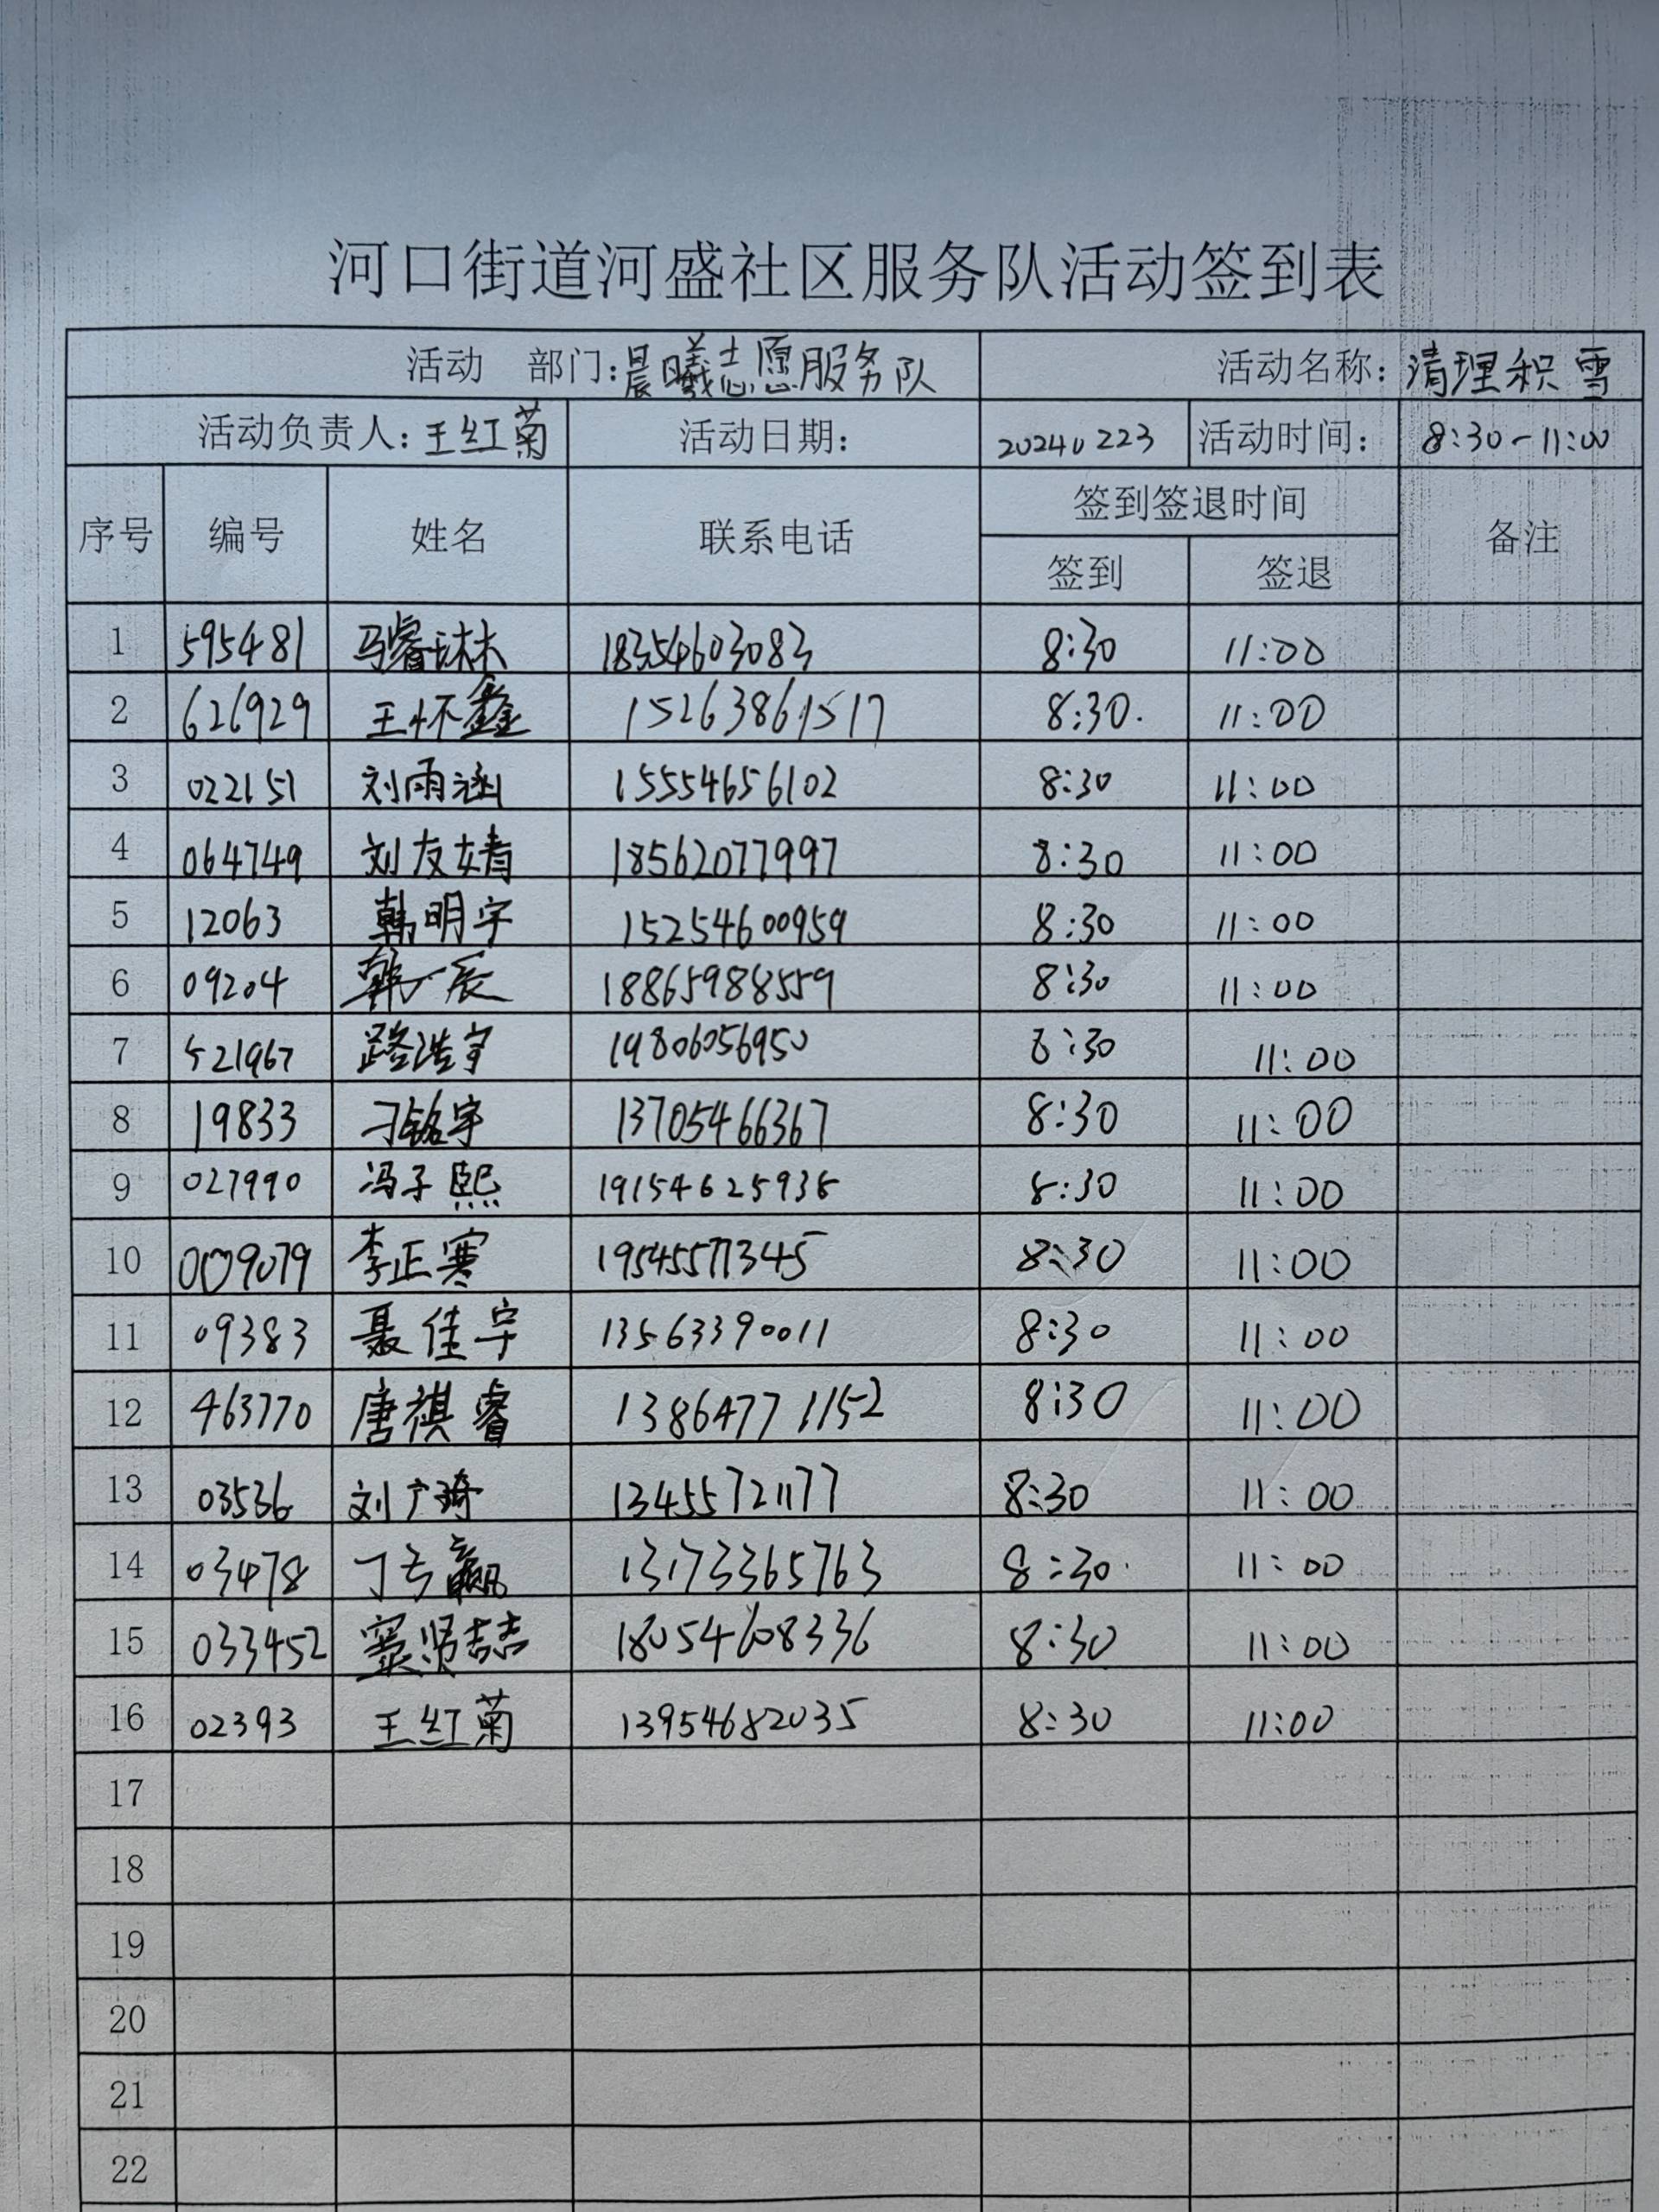 河口街道河盛社区服务队活动签到表
活动 部门:晨曦志愿服务队 活动名称:清理积雪
活动负责人:王红菊 活动日期: 20240223 活动时间: 8:30-11:00
序号 编号 姓名 联系电话 签到签退时间 备注
签到 签退
1 595481 马睿琳 18354603083 8:30 11:00
2 626929 王怀鑫 15263861517 8:30. 11:00
3 022151 刘雨涵 15554656102 8:30 11:00
4 064749 刘友婧 18562077997 8:30 11:00
5 12063 韩明宇 15254600959 8:30 11:00
6 09204 韩一辰 18865988559 8:30 11:00
7 521967 路浩宇 19806056950 8:30 11:00
8 19833 刁铭宇 13705466367 8:30 11:00
9 027990 冯子熙 19154625938 8:30 11:00
10 李正寒 19545577345 8:30 11:00
11 09383 聂佳宇 13563390011 8:30 11:00
12 463770 唐祺睿 13864771152 8:30 11:00
13 03536 刘广琦 13455721177 8:30 11:00
14 03478 13173365763 8:30 11:00
15 033452 窦贤喆 18054608336 8:30 11:00
16 02393 王红菊 13954682035 8:30 11:00
17
18
19
20
21
22